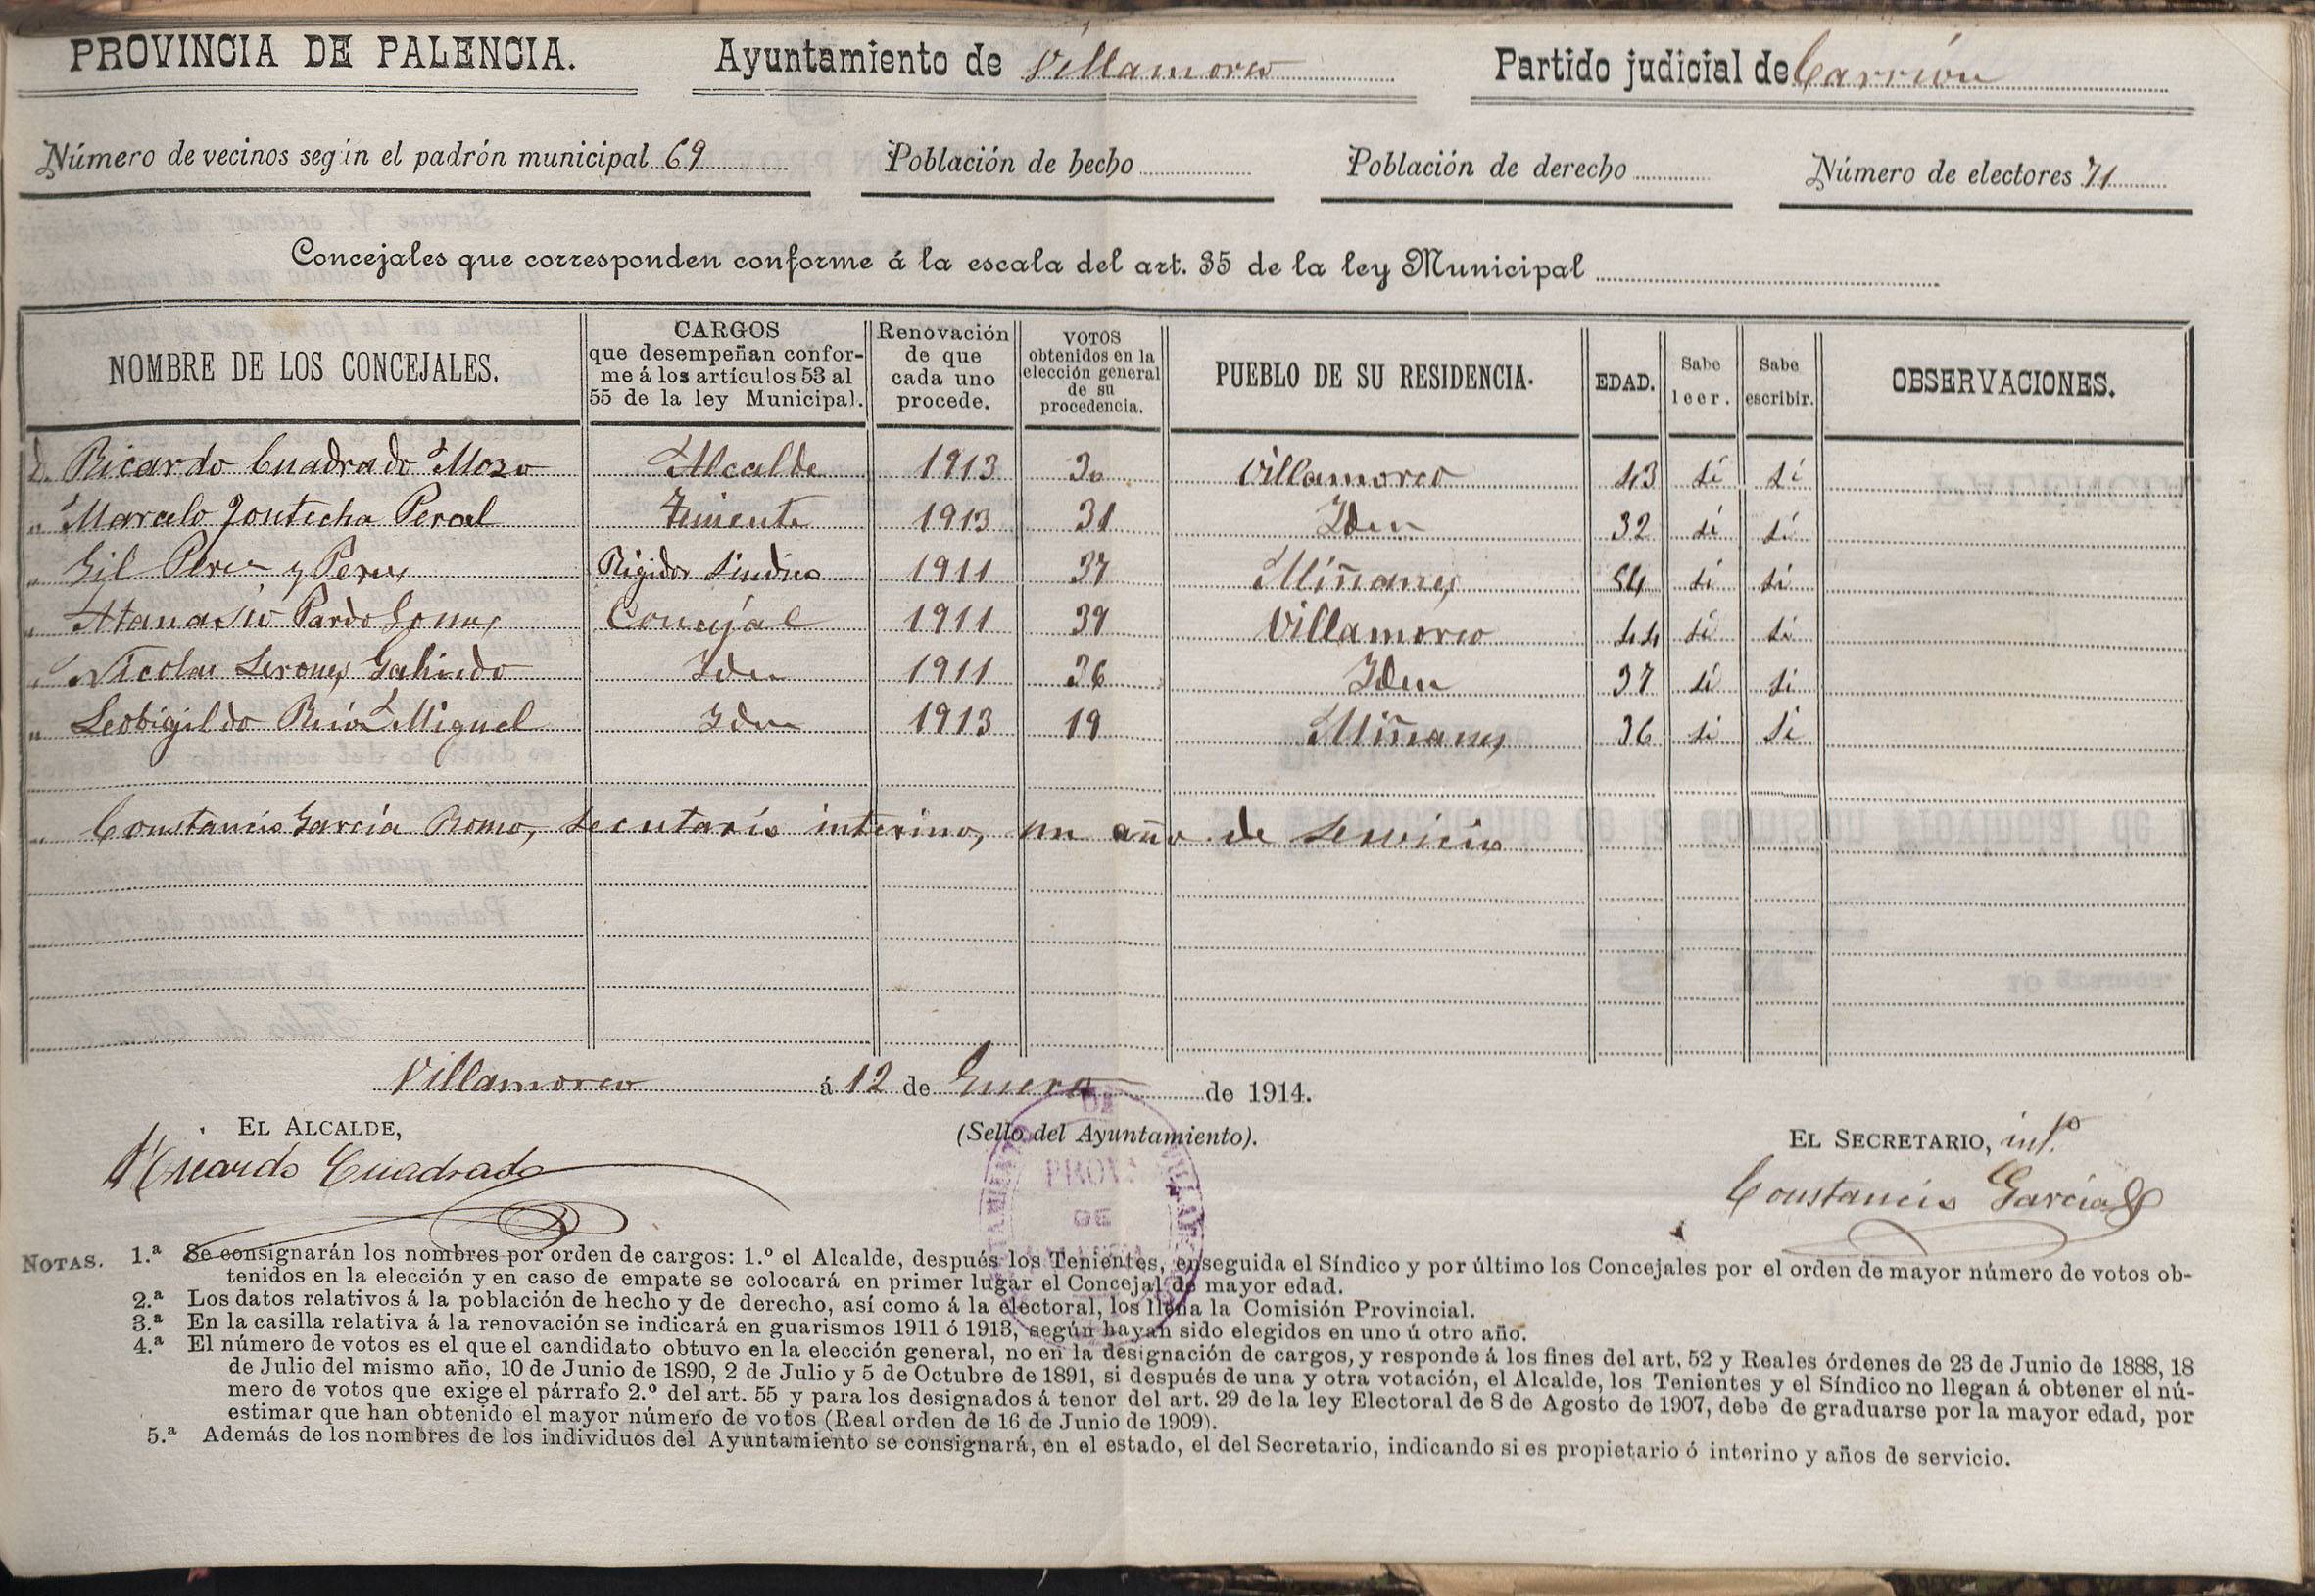 PROVINCIA DE PALENCIA. Ayuntamiento de Villamorco Partido judicial de Carrión
Número de vecinos según el padrón municipal 69 Población de hecho Población de derecho Número de electores 71
Concejales que corresponden conforme á la escala del art. 35 de la ley Municipal
NOMBRE DE LOS CONCEJALES. CARGOS que desempeñan conforme á los artículos 53 al 55 de la ley Municipal. Renovación de que cada uno procede. VOTOS obtenidos en la elección general de su procedencia. PUEBLO DE SU RESIDENCIA. EDAD. Sabe leer. Sabe escribir. OBSERVACIONES.
D. Ricardo Cuadrado Mozo Alcalde 1913 30 Villamorco 43 sí sí
" Marcelo Fontecha Peral Teniente 1913 31 Iden 32 sí sí
" Gil Perez y Perez Rigidor Sindico 1911 37 Miñanes 54 sí sí
" Atanasio Pardo Gomez Concejal 1911 39 Villamorco 44 sí sí
" Nicolas Serones Galindo Iden 1911 36 Iden 37 sí si
" Leobigildo Rios Miguel Iden 1913 19 Miñanes 36 si Si
" Constancio García Romo, secretario interino, un año de servicio
Villamorco á 12 de Enero de 1914.
EL ALCALDE, (Sello del Ayuntamiento). EL SECRETARIO, int.º
Ricardo Cuadrado Constancio García
PROVA
DE
NOTAS. 1.ª Se consignarán los nombres por orden de cargos: 1.º el Alcalde, después los Tenientes, enseguida el Síndico y por último los Concejales por el orden de mayor número de votos ob-
tenidos en la elección y en caso de empate se colocará en primer lugar el Concejal de mayor edad.
2.ª Los datos relativos á la población de hecho y de derecho, así como á la electoral, los llena la Comisión Provincial.
3.ª En la casilla relativa á la renovación se indicará en guarismos 1911 ó 1913, según hayan sido elegidos en uno ú otro año.
4.ª El número de votos es el que el candidato obtuvo en la elección general, no en la designación de cargos, y responde á los fines del art. 52 y Reales órdenes de 23 de Junio de 1888, 18
de Julio del mismo año, 10 de Junio de 1890, 2 de Julio y 5 de Octubre de 1891, si después de una y otra votación, el Alcalde, los Tenientes y el Síndico no llegan á obtener el nú-
mero de votos que exige el párrafo 2.º del art. 55 y para los designados á tenor del art. 29 de la ley Electoral de 8 de Agosto de 1907, debe de graduarse por la mayor edad, por
estimar que han obtenido el mayor número de votos (Real orden de 16 de Junio de 1909).
5.ª Además de los nombres de los individuos del Ayuntamiento se consignará, en el estado, el del Secretario, indicando si es propietario ó interino y años de servicio.